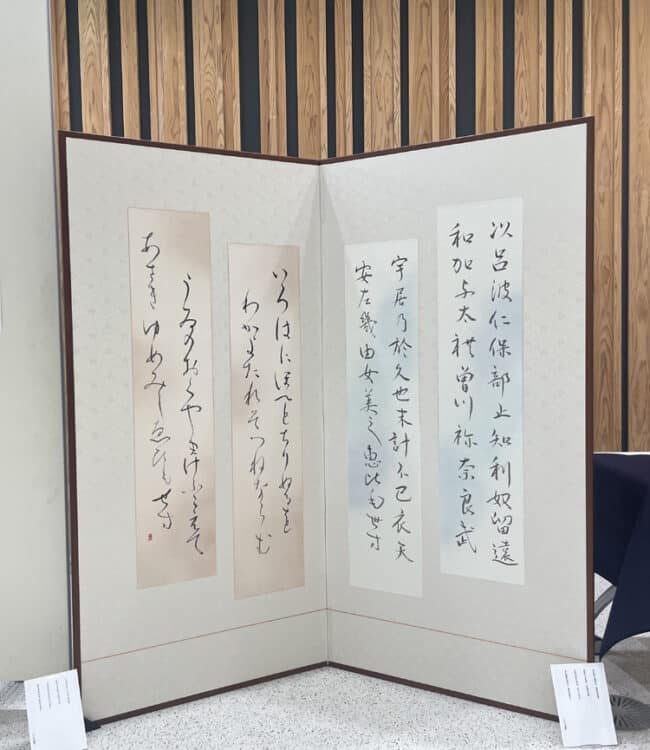 以呂波仁保部止知利奴留遠
和加与太礼曽川祢奈良武
宇為乃於久也末計不己衣天
安左幾由女美之恵比毛世寸
いろはに保へとちりぬるを
わかよたれそつねならむ
うゐのおくやまけ不こえて
あさきゆめみしゑひもせす